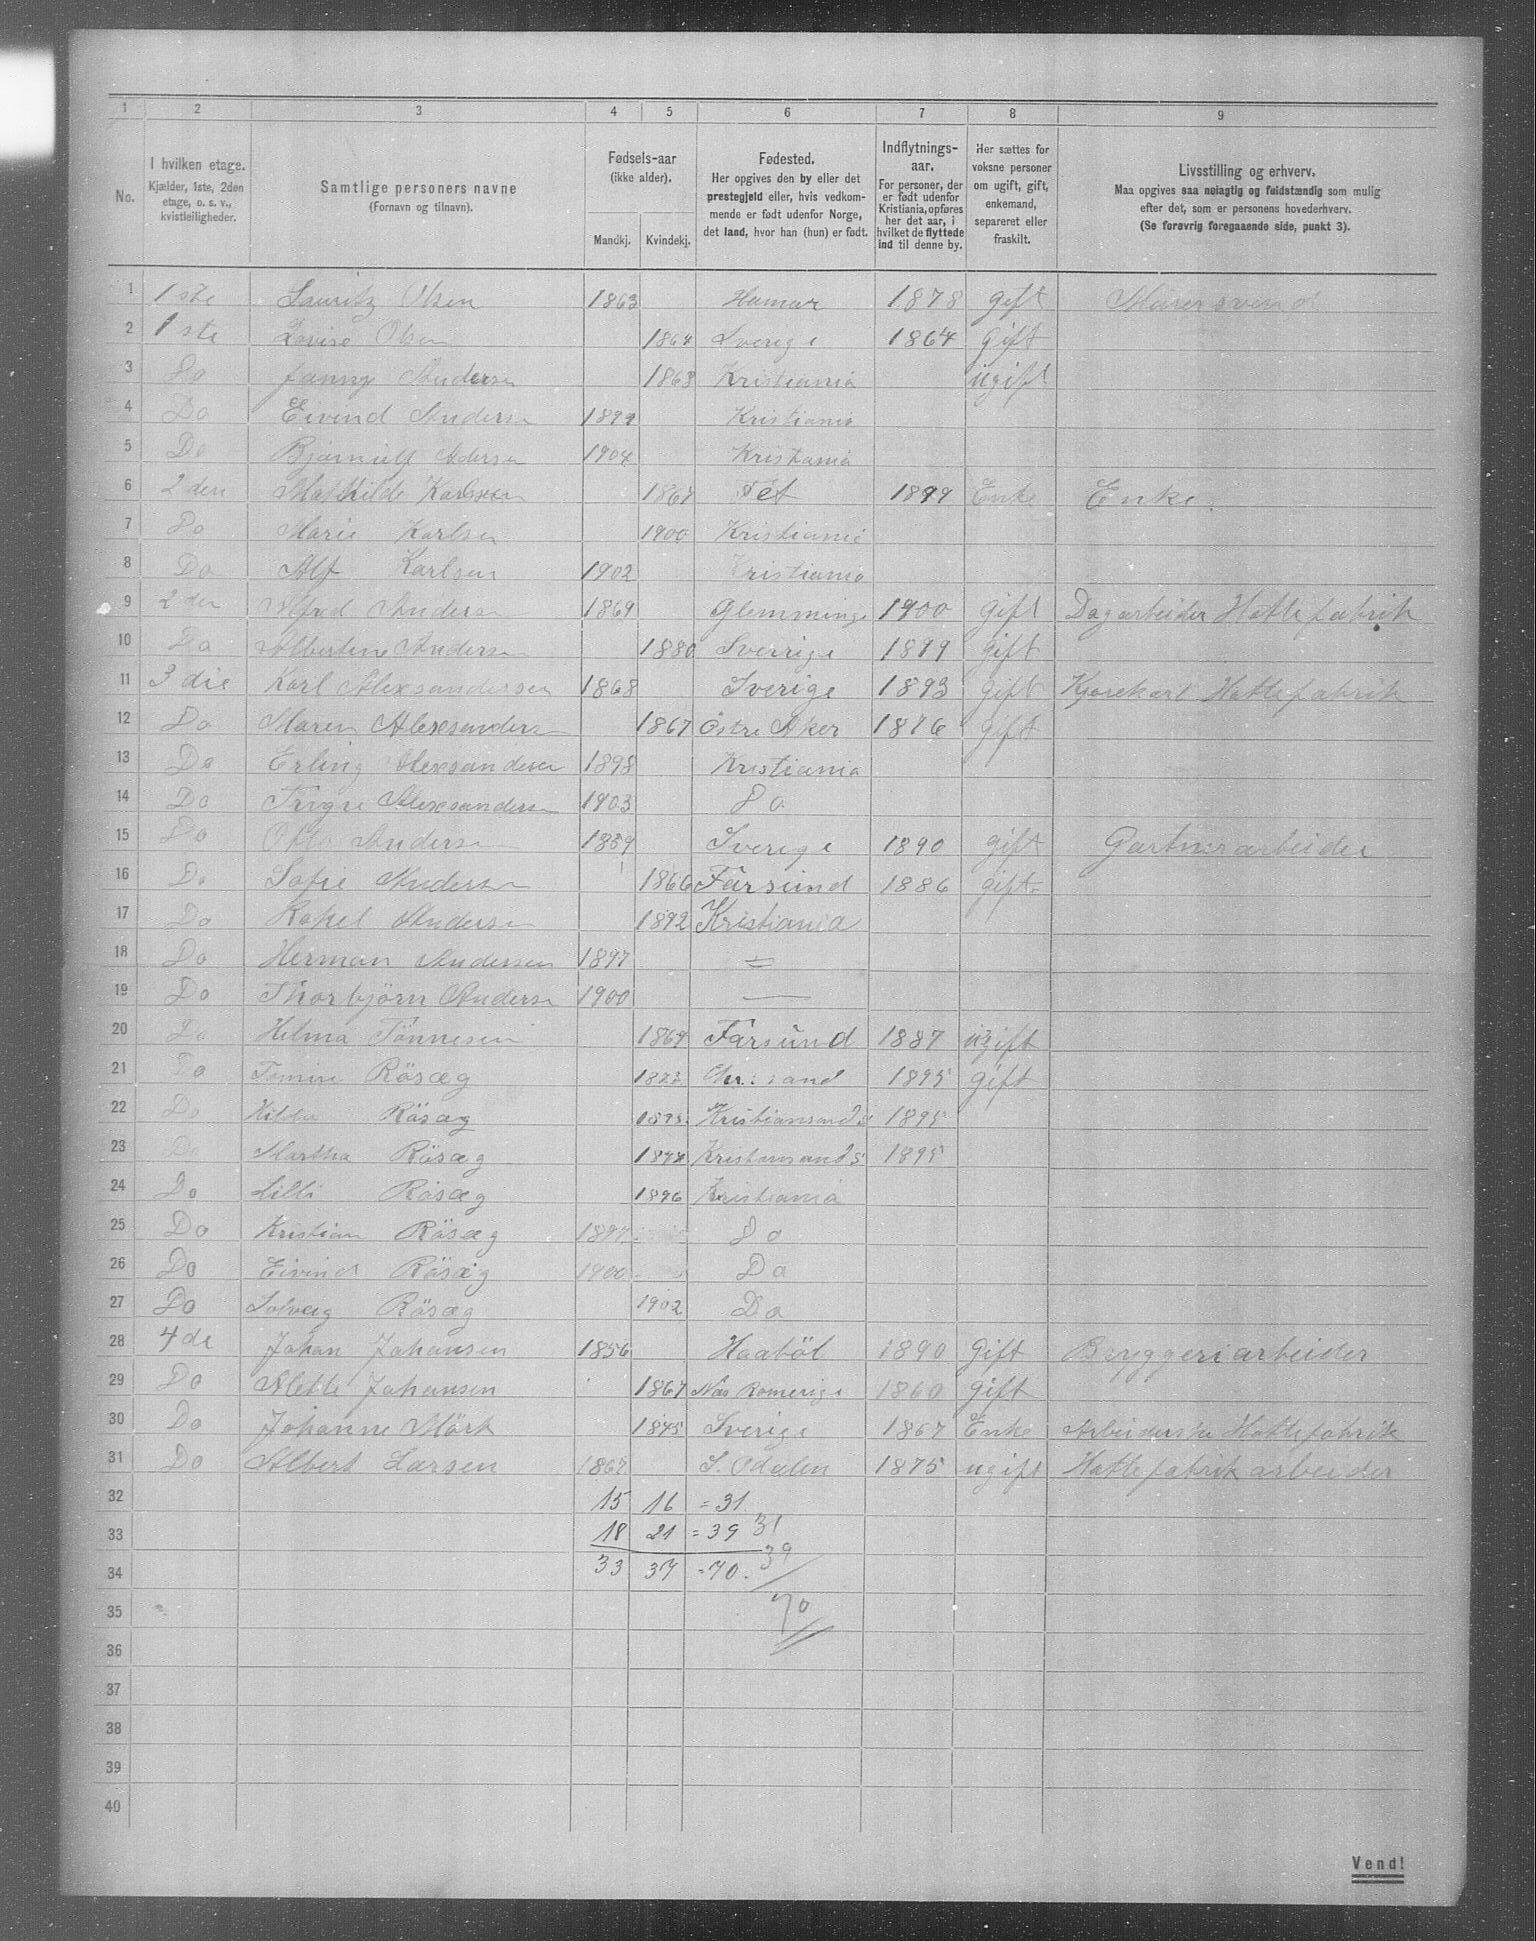 1 2 3 4 5 6 7 8 9
No.
I hvilken etage.
Kjælder, 1ste, 2den
etage, o. s. v.,
kvistleiligheder.
Samtlige personers navne
(Fornavn og tilnavn).
Fødsels-aar
(ikke alder).
Mandkj. Kvindekj.
Fødested.
Her opgives den by eller det
prestegjeld eller, hvis vedkom-
mende er født udenfor Norge,
det land, hvor han (hun) er født.
Indflytnings-
aar.
For personer, der
er født udenfor
Kristiania, opføres
her det aar, i
hvilket de flyttede
ind til denne by.
Her sættes for
voksne personer
om ugift, gift,
enkemand,
separeret eller
fraskilt.
Livsstilling og erhverv.
Maa opgives saa nøiagtig og fuldstændig som mulig
efter det, som er personens hovederhverv.
(Se forøvrig foregaaende side, punkt 3).
1 1ste Lauritz Olsen 1863 Hamar 1878 gift Murersvend
2 1ste Lovise Olsen 1864 Sverige 1864 gift
3 Do Fanny Andersen 1863 Kristiania ugift
4 Do Eivind Anderse Kristiania
5 Do Bjarnulf Adersen 1904 Kristania
6 2den Mathilde Karlsen 1867 Fet 1899 Enke Enke.
7 Do Marie Karlsen 1900 Kristiania
8 Do Alf Karlsen 1902 Kristiania
9 2den Alfred Anderse 1869 Glemminge 1900 gift Dagarbeider Hattefabrik
10 Do Albertine Anderse 1880 Sverrige 1899 gift
11 3die Karl Alexsandersen 1868 Sverige 1893 gift Kjørekarl Hattefabrik
12 Do Maren Alexsanderse 1867 Østre Aker 1876 gift
13 Do Erling Alexsandersen 1898 Kristiania
14 Do Trygve Alexsanderse 1903 Do
15 Do Otto Anderse 1859 Sverige 1890 gift Gartnerarbeider
16 Do Sofie Andersen 1866 Farsund 1886 gift
17 Do Rakel Anderse 1892 Kristiania
18 Do Herman Andersen 1897 =
19 Do Thorbjörn Anderse 1900 —
20 Do Helma Tönnesen 1869 Farsund 1887 ugift
21 Do Rösæg Chr.sand 1895 gift
22 Do Hilda Rösæg 1893 Kristiansand S 1895
23 Do Martha Rösæg Kristansand S 1895
24 Do Lilli Rösæg 1896 Kristiania
25 Do Kristian Rösæg 1897 Do
26 Do Eivind Rösæg 1900 Do
27 Do Solveig Rösæg 1902 Do
28 4de Johan Johansen 1856 Haaböl 1890 Gift Bryggeriarbeider
29 Do Alette Johansen 1867 Næs Romerige 1860 gift
30 Do Johanne Mörk 1845 Sverige 1867 Enke Arbeiderske Hattefabrik
31 Do Albert Larsen 1867 S. Odalen 1875 ugift Hattefabrikarbeider
32 15 16 = 31.
33 18 21 = 39 31
34 33 37 = 70. 39
35 70
36
37
38
39
40
Vend!